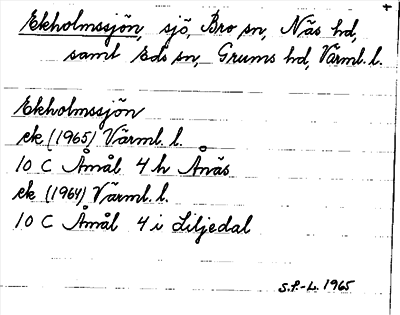 Ekholmssjön, sjö, Bro sn, Näs hd,
samt Eds sn, Grums hd, Värml. l.
Ekholmssjön
ek (1965) Värml. l.
10 C Åmål 4 h Ånäs
ek (1964) Värml. l.
10 C Åmål 4 i Liljedal
S.P.-L. 1965